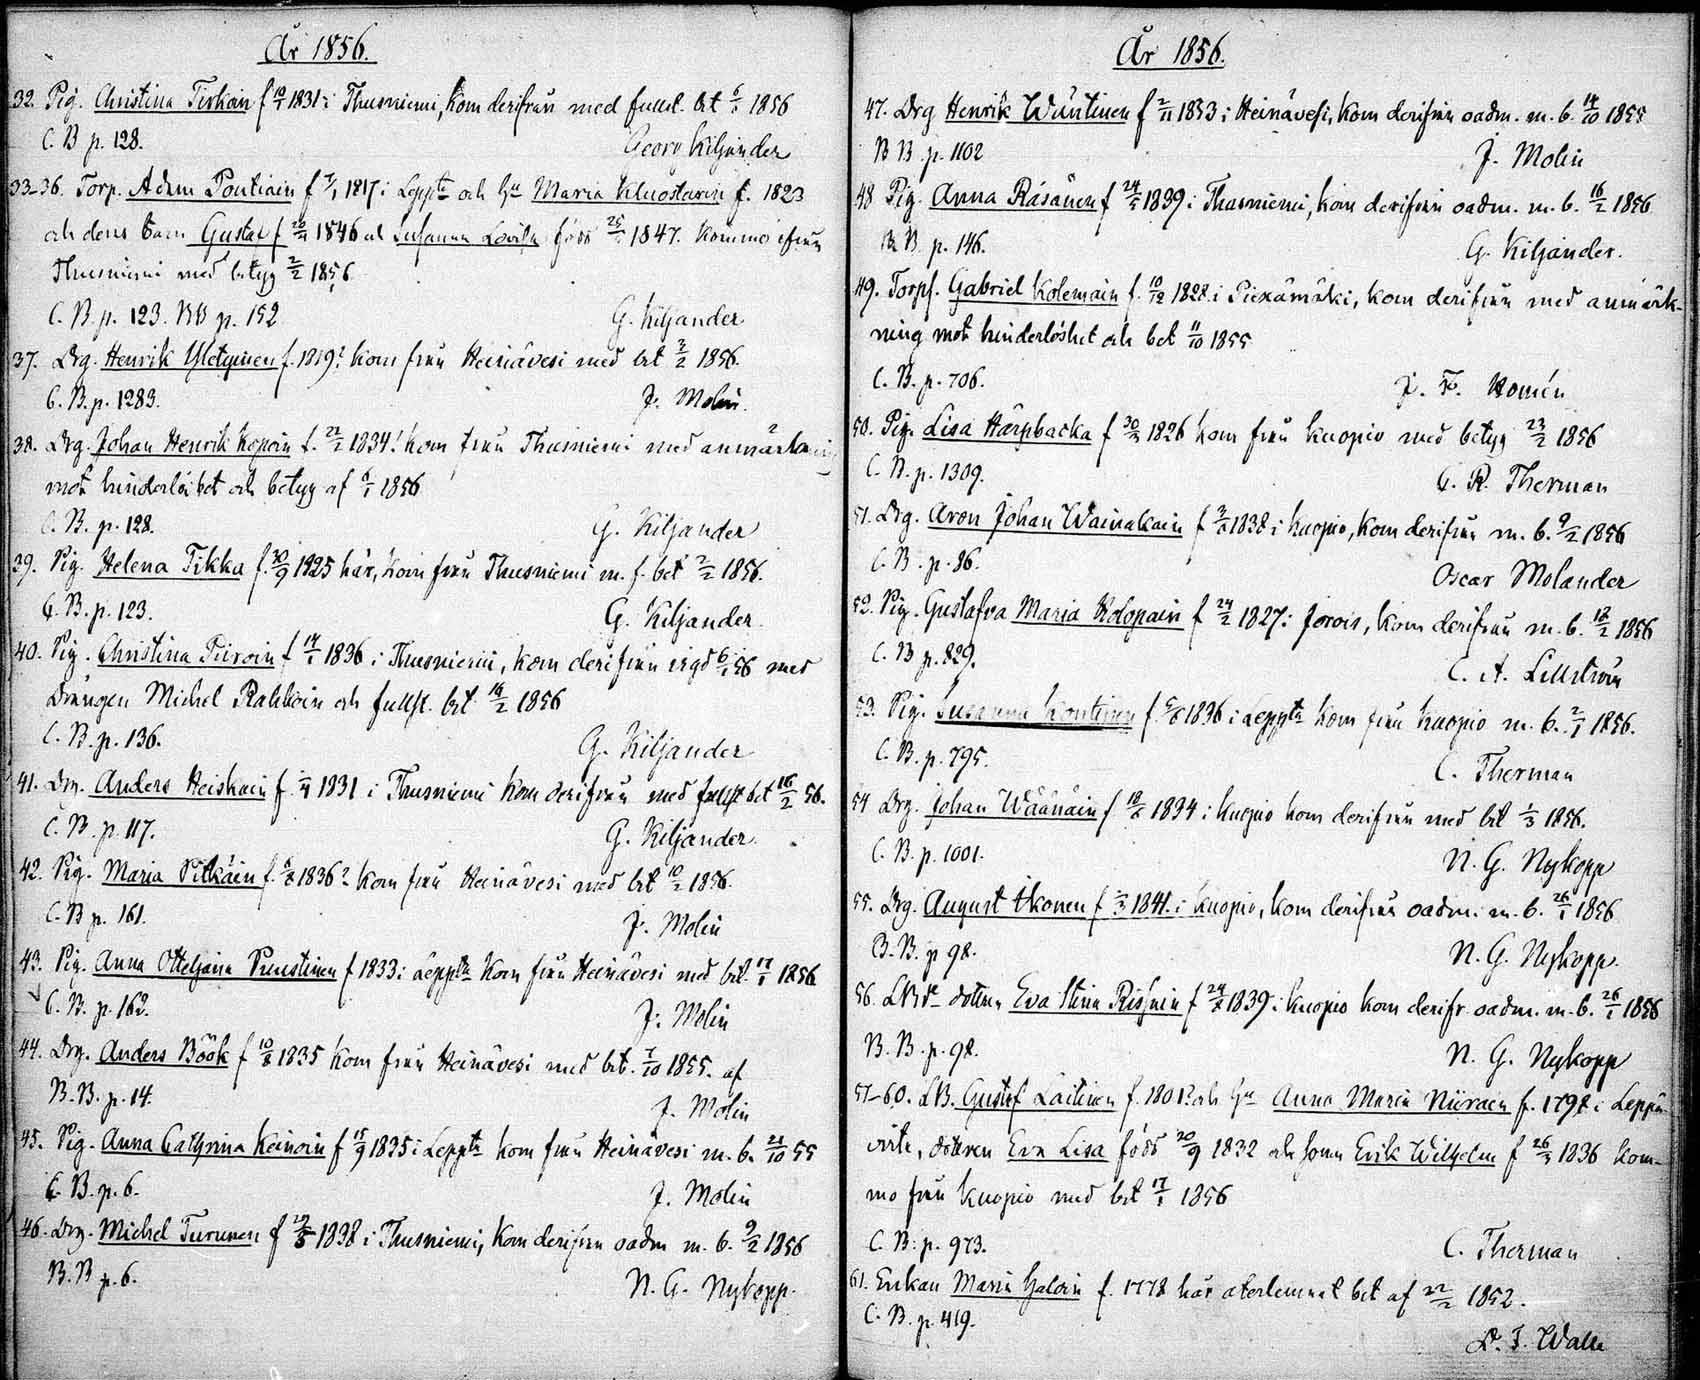 År 1856.
32. Pig. Christina Tirkoin f 1831 i Thusniemi, kom derifrån med fullst. bet 1856
C. B p. 128.
Georg Kiljander
33-36. Torp. Adam Pontiain f 1817 i Leppta och hu Maria f. 1823
och dess barn Gustaf f 1846 och Susanna Lovisa född 25 1847. Kommo ifrån
Thusniemi med betyg 2/2 1856
C. B. p. 123. BB p. 152
G. Kiljander
37. Drg. Henrik f. 1819? kom från Heinävesi med bet 3/2 1856.
C. B. p. 1283.
J. Molin.
38. Drg. Johan Henrik Kopoin f. 1834! kom från Thusniemi med anmärkning
mot hinderlöshet och betyg af 1856
C. B. p. 128.
G. Kiljander
39. Pig. Helena Tikka f. 30/9 1825 här, kom från Thusniemi m. f. bet 2/2 1856.
C. B. p. 123.
G. Kiljander.
40. Pig. Christina Piiroin f 1836 i Thusniemi, kom derifrån vigd 56 med
Drängen Michel och fullst. bet 16/2 1856
C. B. p. 136.
G. Kiljander
41. Drg. Anders Heiskain f. 1831 i Thusniemi kom derifrån med fullst bet 16/2 56.
C. B. p. 117.
G. Kiljander.
42. Pig. Maria Pitkäin f. 1836? kom från Heinävesi med bet 10/2 1856.
C. B p. 161.
J. Molin
43. Pig. Anna Otteljana Puustinen f 1833 i Leppta kom från Heinävesi med bet. 17/1 1856
C. B. p. 162.
J. Molin
44. Drg. Anders Böök f 10/8 1835 kom från Heinävesi med bet. 7/10 1855. af
B. B. p. 14.
J. Molin
45. Pig. Anna Cathrina Keinoin f 15/9 1835 i Leppta kom från Heinävesi m. b. 21/10 55
C. B. p. 6.
J. Molin
46. Drg. Michel Turunen f 1838 i Thusniemi, kom derifrån oadm m. b. 9/2 1856
B. B p. 6.
N. G. Nykopp.
År 1856.
47. Drg Henrik Wäntinen f 2/11 1833 i Heinävesi, kom derifrån oadm. m. b. 14/10 1855
B B. p. 1102
J. Molin
48 Pig. Anna Räsänen f 24 1839 i Thusniemi, kom derifrån oadm. m. b. 16/2 1856
B. B. p. 146.
G. Kiljander.
49. Torpf. Gabriel Kolemain f. 10/12 1828 i Piexämäki, kom derifrån med anmärk-
ning mot hinderlöshet och bet 11/10 1855
C. B. p. 706.
J. F. Homén
50. Pig. Lisa Härpbacka f 30 1826 kom från Kuopio med betyg 23/2 1856
C. B. p. 1309.
C. R. Therman
51. Drg. Aron Johan Wainikain f 1838 i Kuopio, kom derifrån m. b. 9/2 1856
C. B. p. 86.
Oscar Molander
52. Pig. Gustafva Maria Kolopain f 24/2 1827 i Jorois, kom derifrån m. b. 18/2 1856
C. B p. 829.
C. A. Lillström
53. Pig. Susanna f. 1836 i Leppta kom från Kuopio m. b. 2/1 1856.
C. B. p. 795.
C. Therman
54 Drg. Johan Wäänäin f 1834 i Kuopio kom derifrån med bet 1/3 1856.
C. B. p. 1001.
N. G. Nykopp
55. Drg. August Ikonen f 1841 i Kuopio, kom derifrån oadm. m. b. 26/1 1856
B. B. p 98.
N. G. Nykopp.
56. dottern Eva Stina f 24 1839 i Kuopio kom derifr oadm. m. b. 26/1 1856
B. B. p. 98.
N. G. Nykopp
57-60. LB. Gustaf Laitinen f. 1801? och hu Anna Maria Niirain f. 1798 i Leppä-
virta, dottren Eva Lisa född 20/9 1832 och sonen Erik Wilhelm f 26 1836 kom-
mo från Kuopio med bet 17/1 1856
C. B. p. 973.
C. Therman
61. Enkan Maria f. 1778 här återlemnat bet af 22/2 1852.
C. B. p. 419.